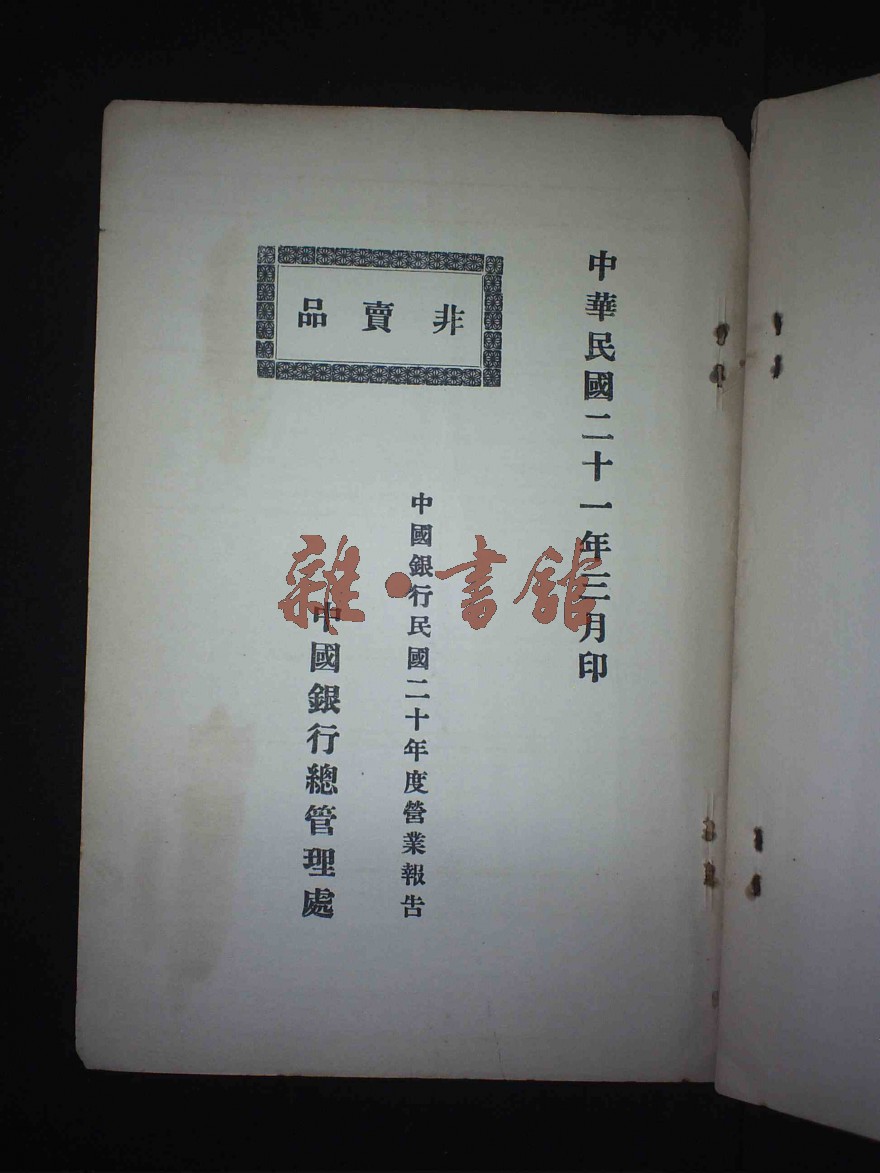 中華民國二十一年三月印
非賣品
中國銀行民國二十年度營業報告
中國銀行總管理處
雜·書館